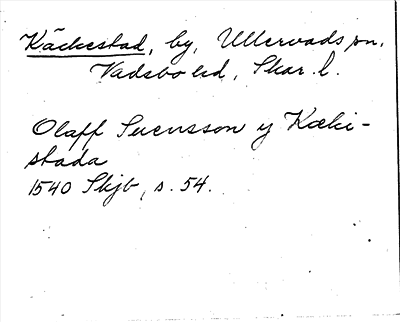 Käckestad, by, Ullervads sn,
Vadsbo hd, Skar. l.
Olaff Suensson y Kæki-
stada
1540 Skjb, s. 54.